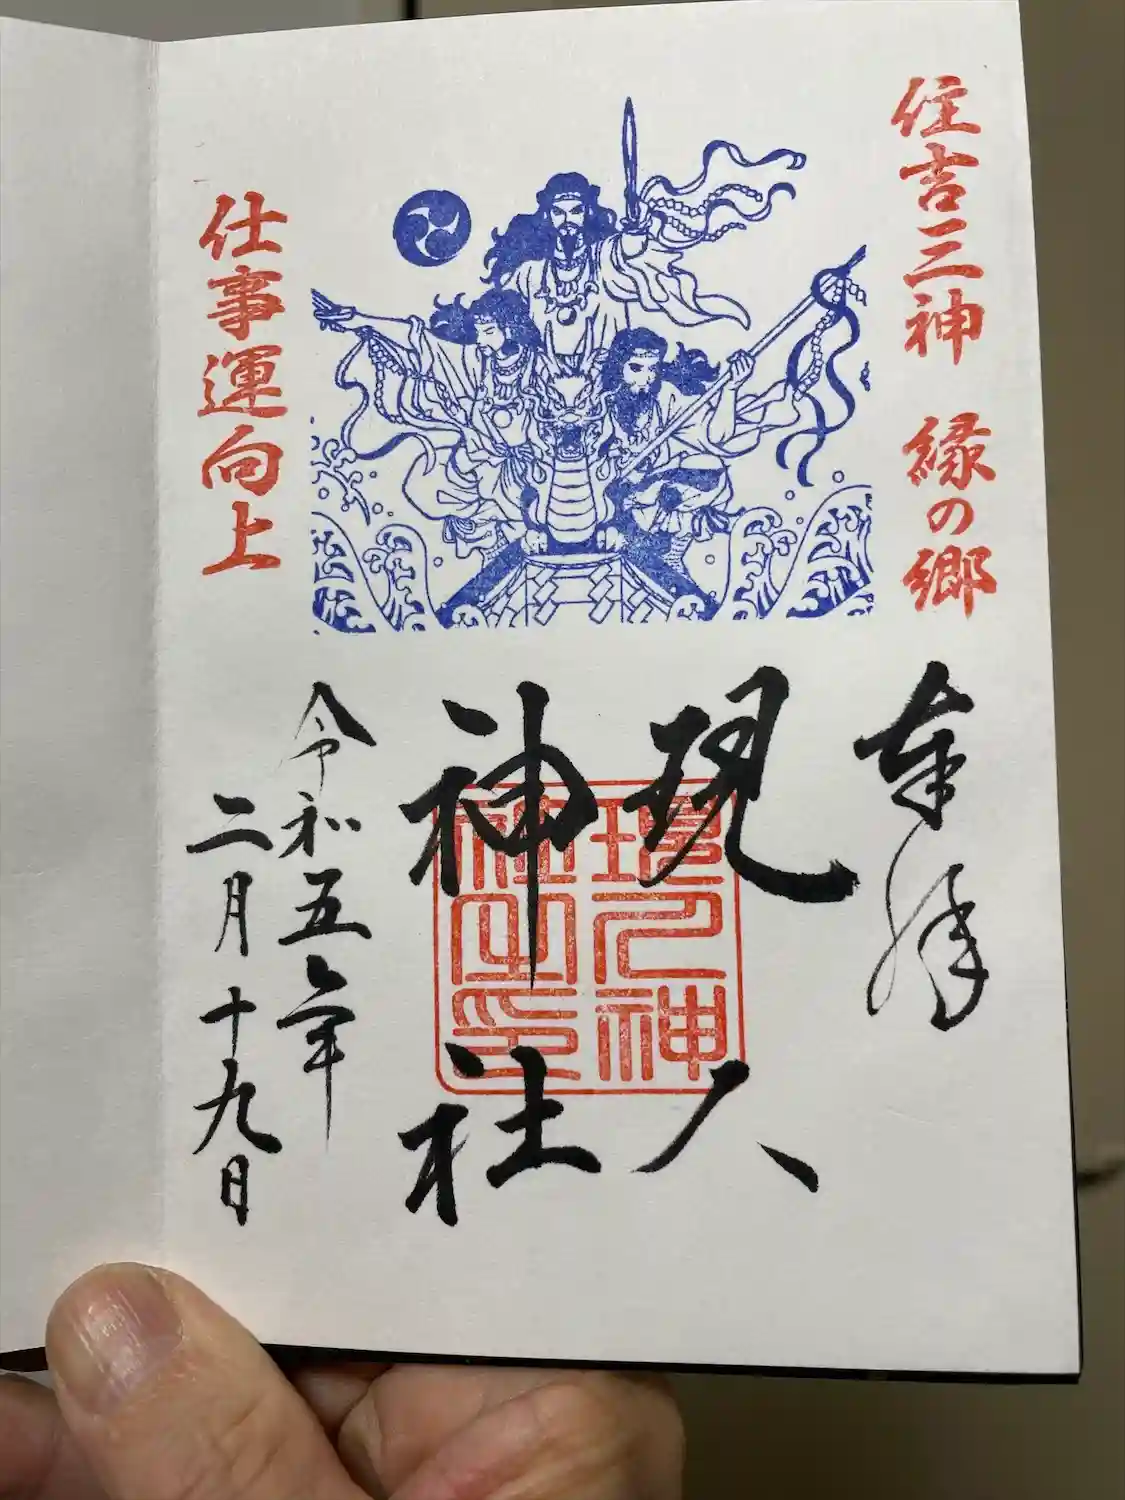 住吉三神 縁の郷
奉拝
現人
神社
現人神
社之印
仕事運向上
令和五年
二月十九日